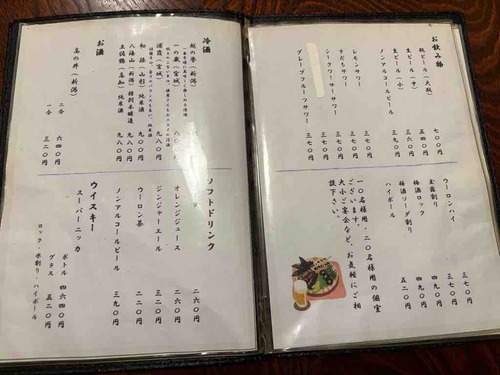 お飲み物
瓶ビール（大瓶） 七〇〇円
生ビール（中） 五四〇円
生ビール（小） 三七〇円
ノンアルコールビール 三九〇円
レモンサワー 三七〇円
すだちサワー 三七〇円
シークワーサーサワー 三七〇円
グレープフルーツサワー 三七〇円
ウーロンハイ 三七〇円
玉露割り 三七〇円
梅酒ロック 四九〇円
梅酒ソーダ割り 四九〇円
ハイボール 五二〇円
一〇名様用・二〇名様用の個室
ございます。
大小ご宴会など、お気軽にご相
談下さい。
冷酒
越の誉（新潟）
一の蔵（宮城） 八〇〇円
浦霞（宮城） 九八〇円
初孫（山形）純米酒 九〇〇円
八海山（新潟）特別本醸造 九八〇円
土佐鶴（高知）純米酒 九八〇円
お酒
高の井（新潟）
二合 六四〇円
一合 三二〇円
ソフトドリンク
オレンジジュース 二六〇円
ジンジャーエール 二六〇円
ウーロン茶 二二〇円
ノンアルコールビール 三九〇円
ウイスキー
スーパーニッカ
ボトル 四六四〇円
グラス 五二〇円
ロック・水割り・ハイボール